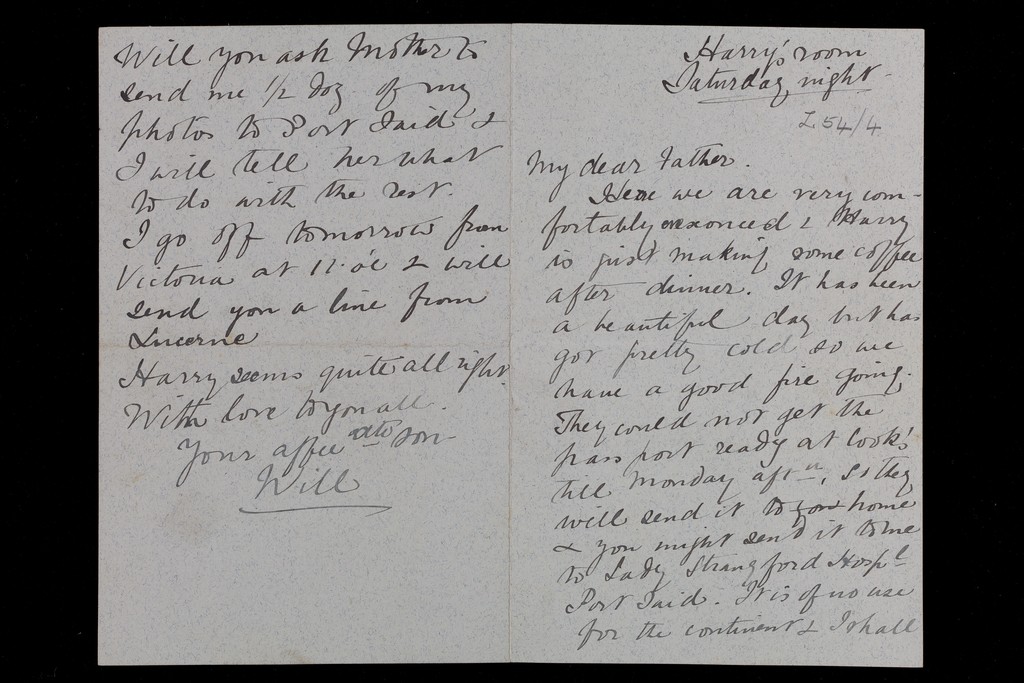 Harry's room
Saturday night
L 54/4
My dear Father.
Here we are very com-
fortably ensconced & Harry
is just making some coffee
after dinner. It has been
a beautiful day but has
got pretty cold so we
have a good fire going.
They could not get the
pass port ready at Cook's
till Monday aftn, so they
will send it to you home
& you might send it to me
to Lady Strangford Hospl
Port Said. It is of no use
for the continent & I shall
Will you ask Mother to
send me 1/2 doz of my
photos to Port Said &
I will tell her what
to do with the rest.
I go off tomorrow from
Victoria at 11.oc & will
send you a line from
Lucerne
Harry seems quite all right.
With love to you all.
Your affec son
Will